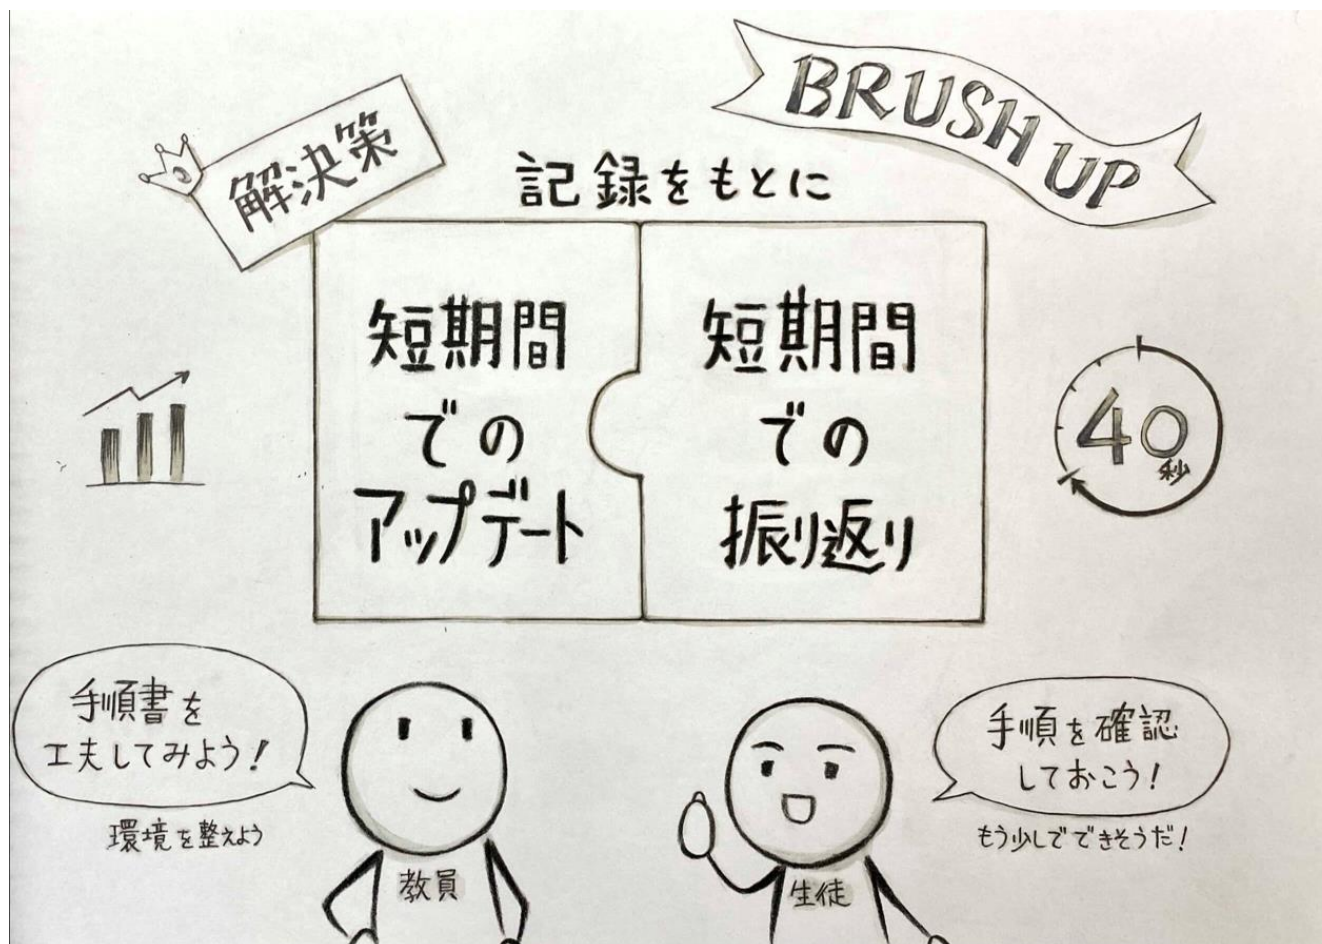 解決策
BRUSH UP
記録をもとに
短期間
での
アップデート
短期間
での
振り返り
40
秒
手順書を
工夫してみよう!
環境を整えよう
教員
手順を確認
しておこう!
もう少しでできそうだ!
生徒